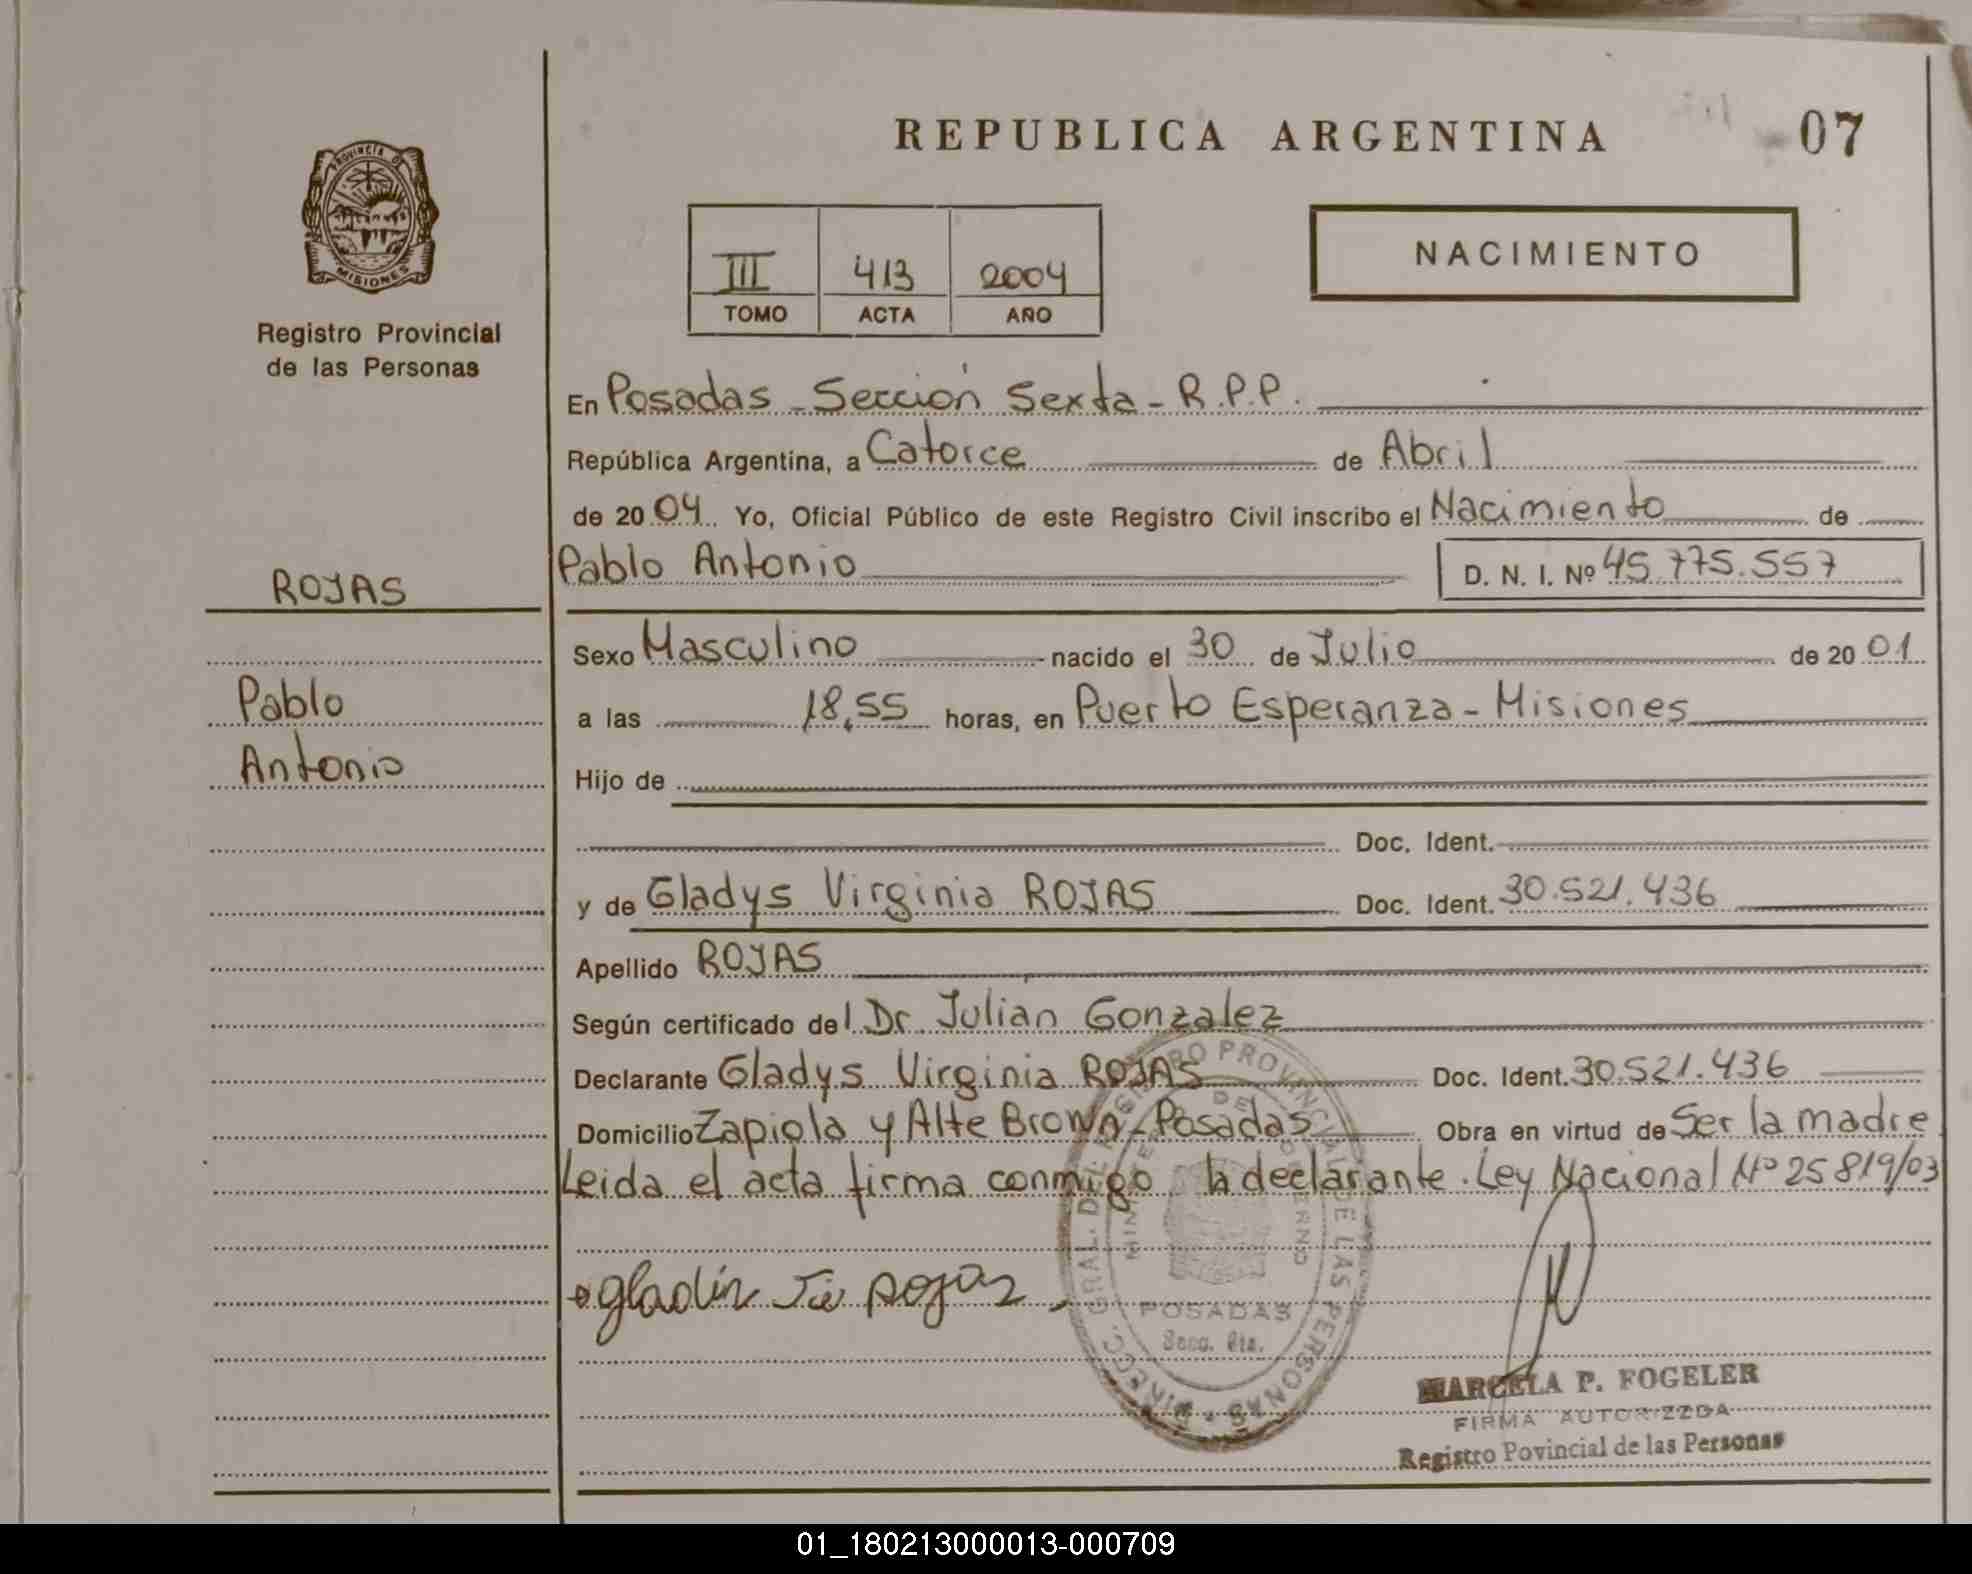 REPUBLICA ARGENTINA
07
PROVINCIA DE
MISIONES
Registro Provincial
de las Personas
III 413 2004
TOMO ACTA AÑO
NACIMIENTO
En Posadas - Sección Sexta - R.P.P.
República Argentina, a Catorce de Abril
de 2004 Yo, Oficial Público de este Registro Civil inscribo el Nacimiento de
Pablo Antonio D. N. I. Nº 45.775.557
ROJAS
Pablo
Antonio
Sexo Masculino nacido el 30 de Julio de 2001
a las 18,55 horas, en Puerto Esperanza - Misiones
Hijo de
Doc. Ident.
y de Gladys Virginia ROJAS Doc. Ident. 30.521.436
Apellido ROJAS
Según certificado del Dr. Julian Gonzalez
Declarante Gladys Virginia ROJAS Doc. Ident. 30.521.436
Domicilio Zapiola y Alte Brown - Posadas Obra en virtud de Ser la madre
Leida el acta firma conmigo la declarante. Ley Nacional Nº 25819/03
DIRECC. GRAL. DEL REGISTRO PROVINCIAL DE LAS PERSONAS
POSADAS
MARCELA P. FOGELER
FIRMA AUTORIZZDA
Registro Povincial de las Personas
01_180213000013-000709